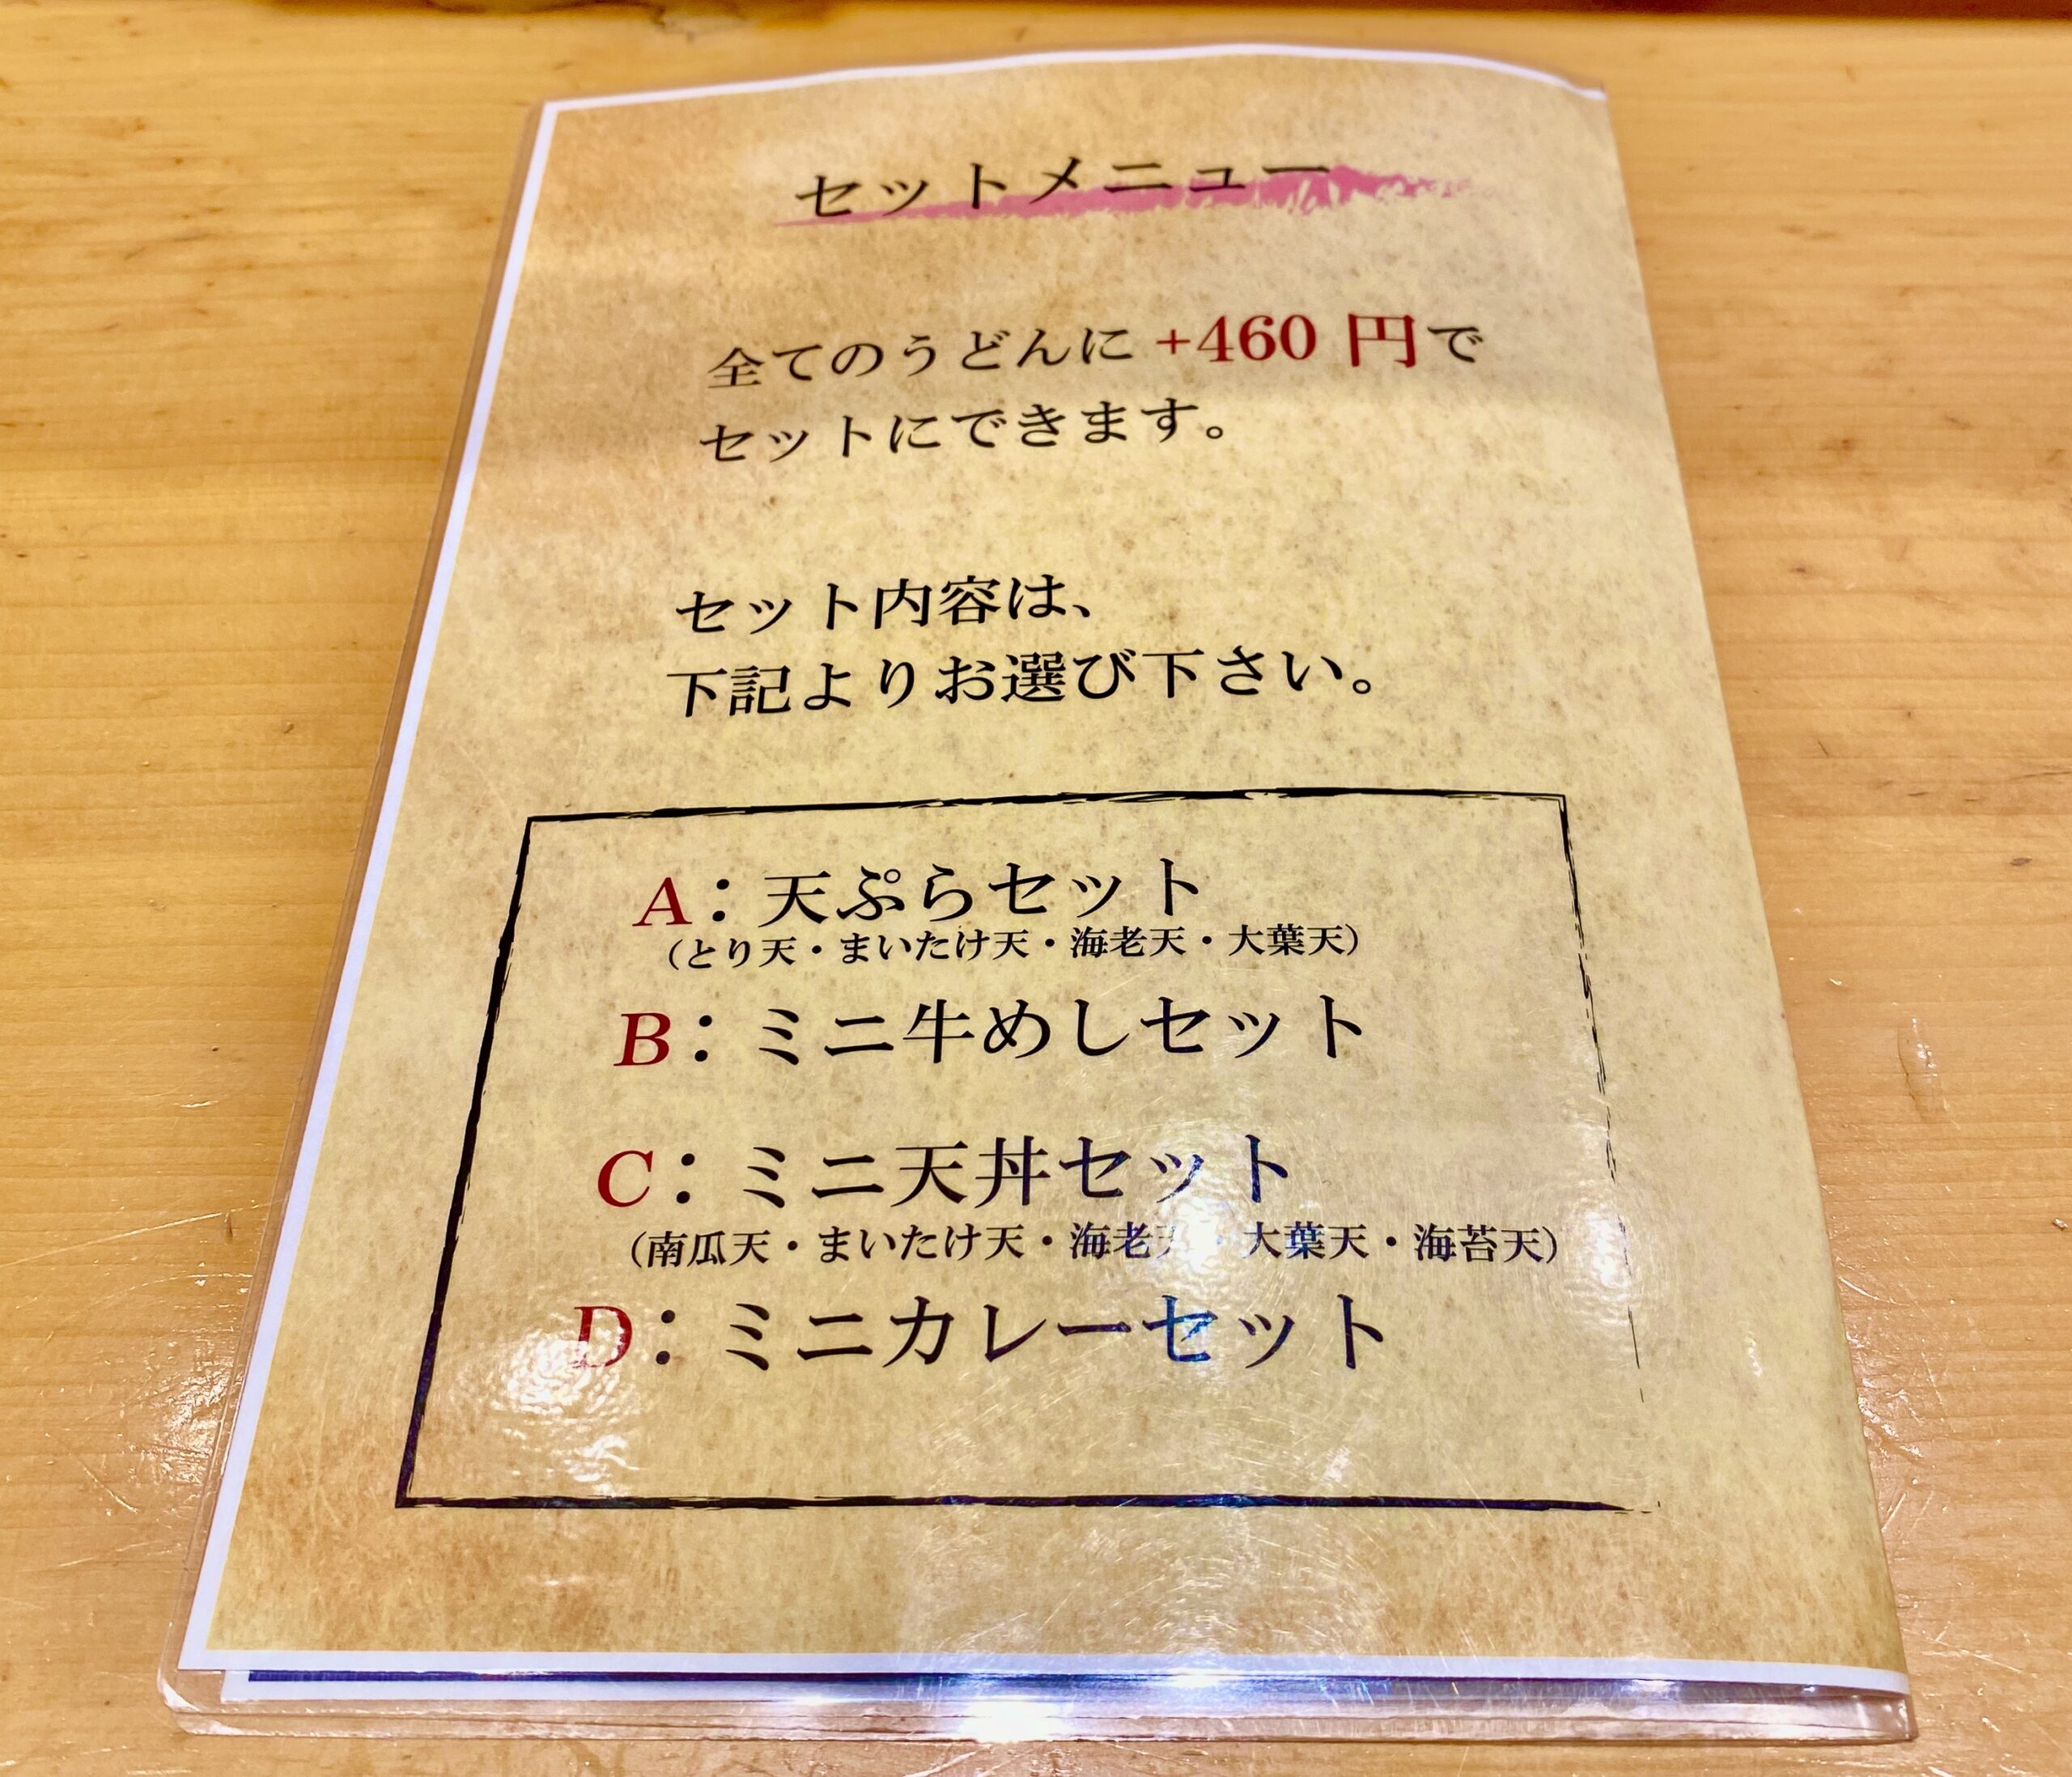 セットメニュー
全てのうどんに +460 円で
セットにできます。
セット内容は、
下記よりお選び下さい。
A：天ぷらセット
（とり天・まいたけ天・海老天・大葉天）
B：ミニ牛めしセット
C：ミニ天丼セット
（南瓜天・まいたけ天・海老天・大葉天・海苔天）
D：ミニカレーセット